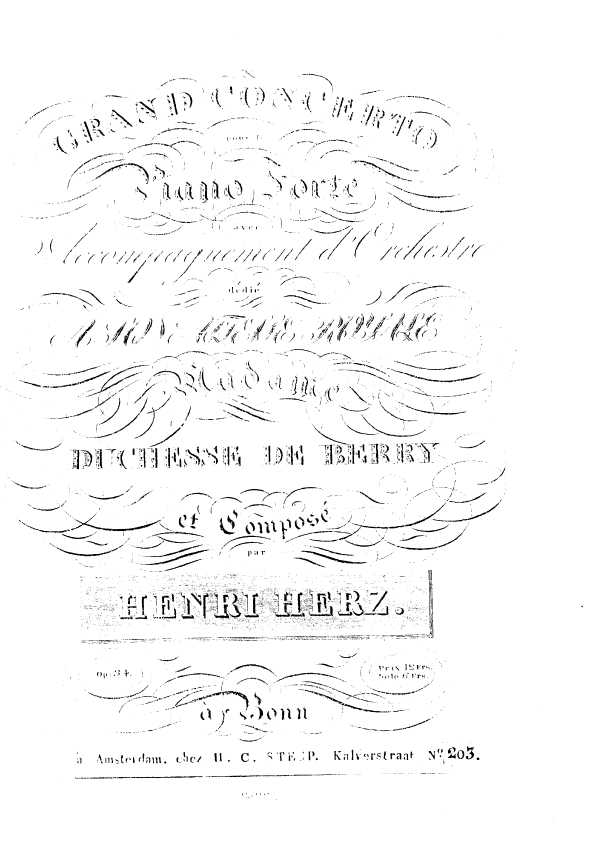 GRAND CONCERTO
pour le
Piano Forte
avec
Accompagnement d'Orchestre
dédié
A SON ALTESSE ROYALE
Madame
DUCHESSE DE BERRY
et Composé
par
HENRI HERZ.
Op. 34.
Prix 12 Frs.
Solo 6 Frs.
à Bonn
à Amsterdam, chez H. C. STEUP. Kalverstraat No. 203.